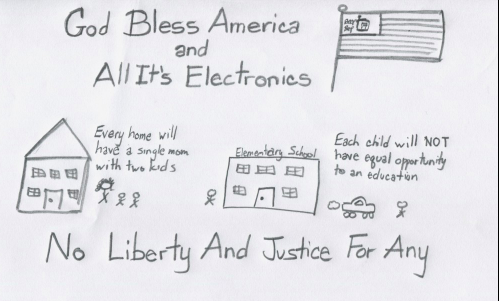 God Bless America
and
All It's Electronics
Every home will
have a single mom
with two kids
Elementary School
Each child will NOT
have equal opportunity
to an education
No Liberty And Justice For Any